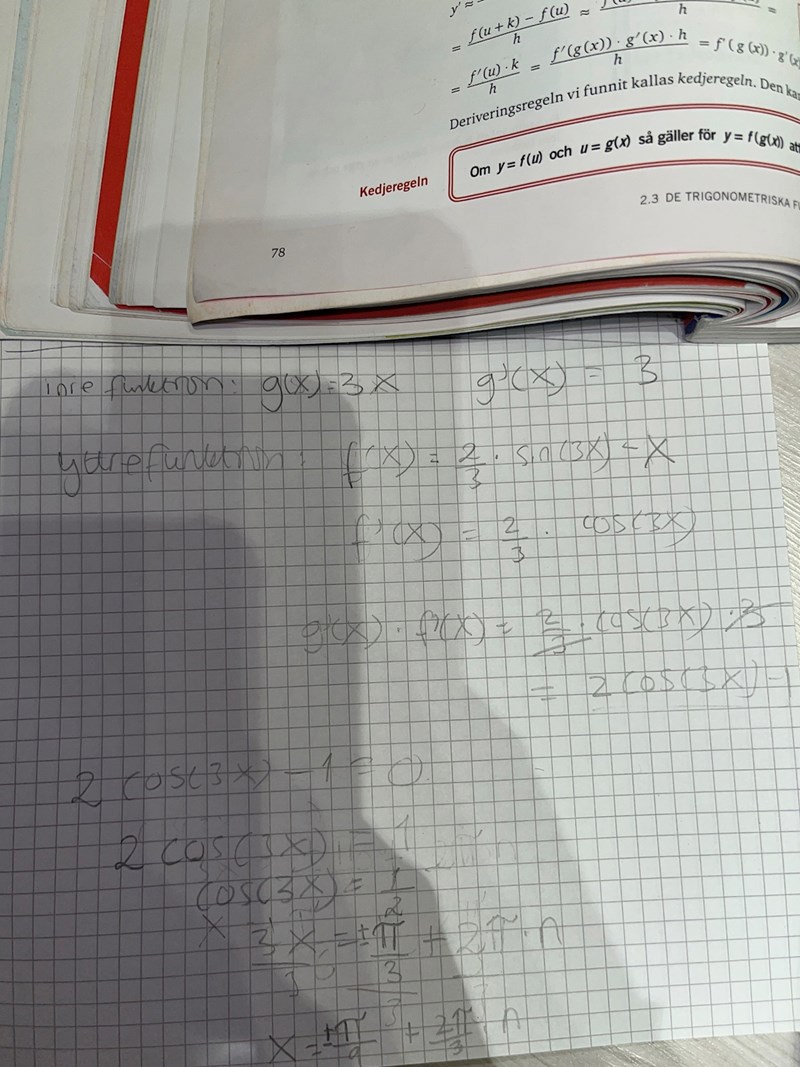 y' ≈
= f(u + k) − f(u) / h ≈ / h =
= f'(u) · k / h = f'(g(x)) · g'(x) · h / h = f'(g(x)) · g'(x
Deriveringsregeln vi funnit kallas kedjeregeln. Den ka
Kedjeregeln
Om y = f(u) och u = g(x) så gäller för y = f(g(x)) att
2.3 DE TRIGONOMETRISKA F
78
inre funktion: g(x) = 3x g'(x) = 3
yttre funktion: f(x) = 2/3 · sin(3x) − x
f'(x) = 2/3 · cos(3x)
g'(x) · f'(x) = 2/3 · cos(3x) · 3
= 2 cos(3x) − 1
2 cos(3x) − 1 = 0
2 cos(3x) = 1
cos(3x) = 1/2
x 3x/3 = ± π/3/3 + 2π · n
x = ± π/9 + 2π/3 n